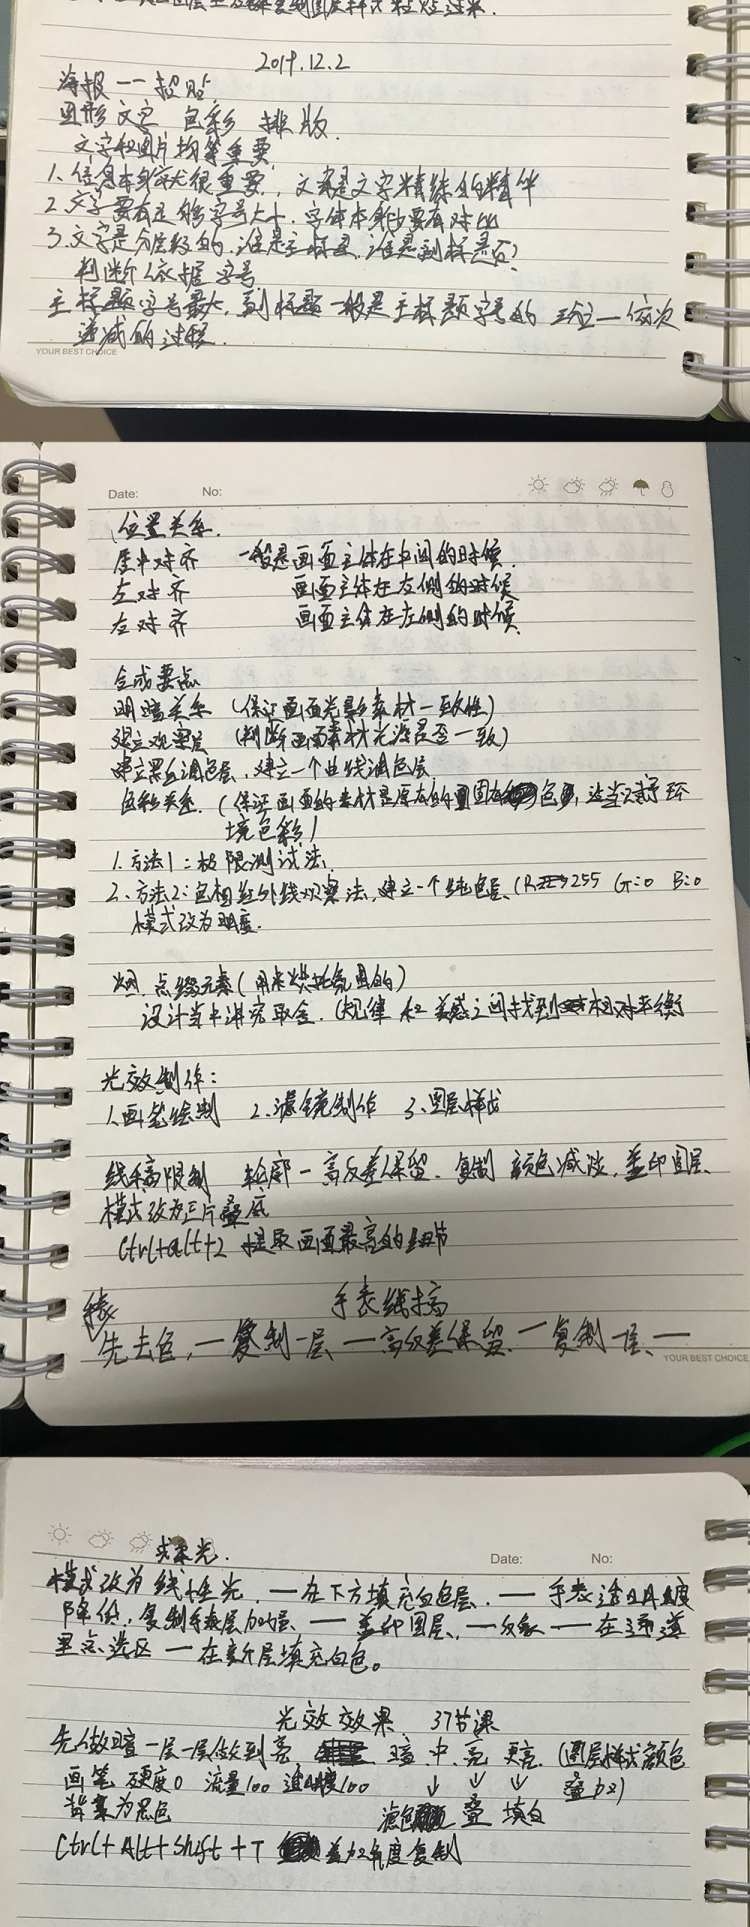 2019.12.2
海报一一招贴
图形 文字 色彩 排版.
文字和图片均等重要
1、信息本身就很重要, 文案是文字精练的精华
2、文字要有足够字号大小, 字体本身要有对比
3、文字是分层级的, 谁是主标题, 谁是副标题?
判断依据 字号
主标题字号最大, 副标题一般是主标题字号的 一依次
递减的过程.
YOUR BEST CHOICE
Date: No:
位置关系.
居中对齐 一般是画面主体在中间的时候.
左对齐 画面主体在右侧的时候
右对齐 画面主体在左侧的时候
合成要点
明暗关系 (保证画面光影素材一致性)
建立观察层 (判断画面素材光源是否一致)
建立黑白调色层, 建立一个曲线调色层
色彩关系. (保证画面的素材是原有的固有色, 适当赋予环
境色彩)
1. 方法1: 极限测试法
2、方法2: 色相红外线观察法, 建立一个纯色层, (R 255 G=0 B=0
模式改为明度.
点缀元素 (用来烘托氛围的)
设计当中讲究取舍. (规律和美感之间找到相对平衡
光效制作:
1.画笔绘制 2、滤镜制作 3、图层样式
线稿限制 轮廓一高反差保留. 复制 颜色减淡, 盖印图层.
模式改为正片叠底
Ctrl+alt+2 提取画面最高的细节
手表 手表线搞
先去色, 一复制一层 一高反差保留. 一复制一层、一
YOUR BEST CHOICE
Date: No:
或柔光.
模式改为线性光. 一在下方填充白色层. 一 手表透明度
降低, 复制手表层 一 盖印图层, 一反象 一 在通道
里点选区 一 在新层填充白色。
光效效果. 37节课
先做暗一层一层做到亮, 暗 中 亮 更亮. (图层样式颜色
画笔 硬度0 流量100 透明度100 ↓ ↓ ↓ 叠加)
背景为黑色 滤色 叠 填白
Ctrl+Alt+Shift+T 角度复制